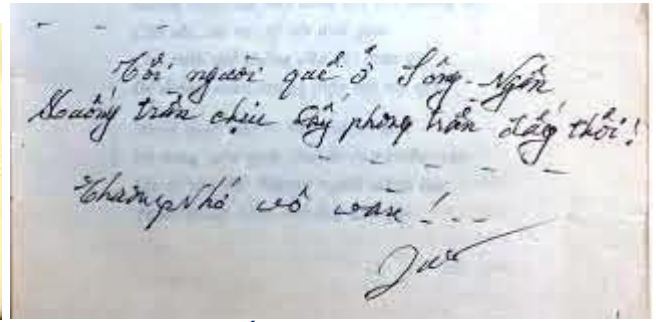 Tôi người quê ở Sông-Ngân
Xuống trần chịu phong trần đấy thôi!
Thương Nhớ vô vàn!...